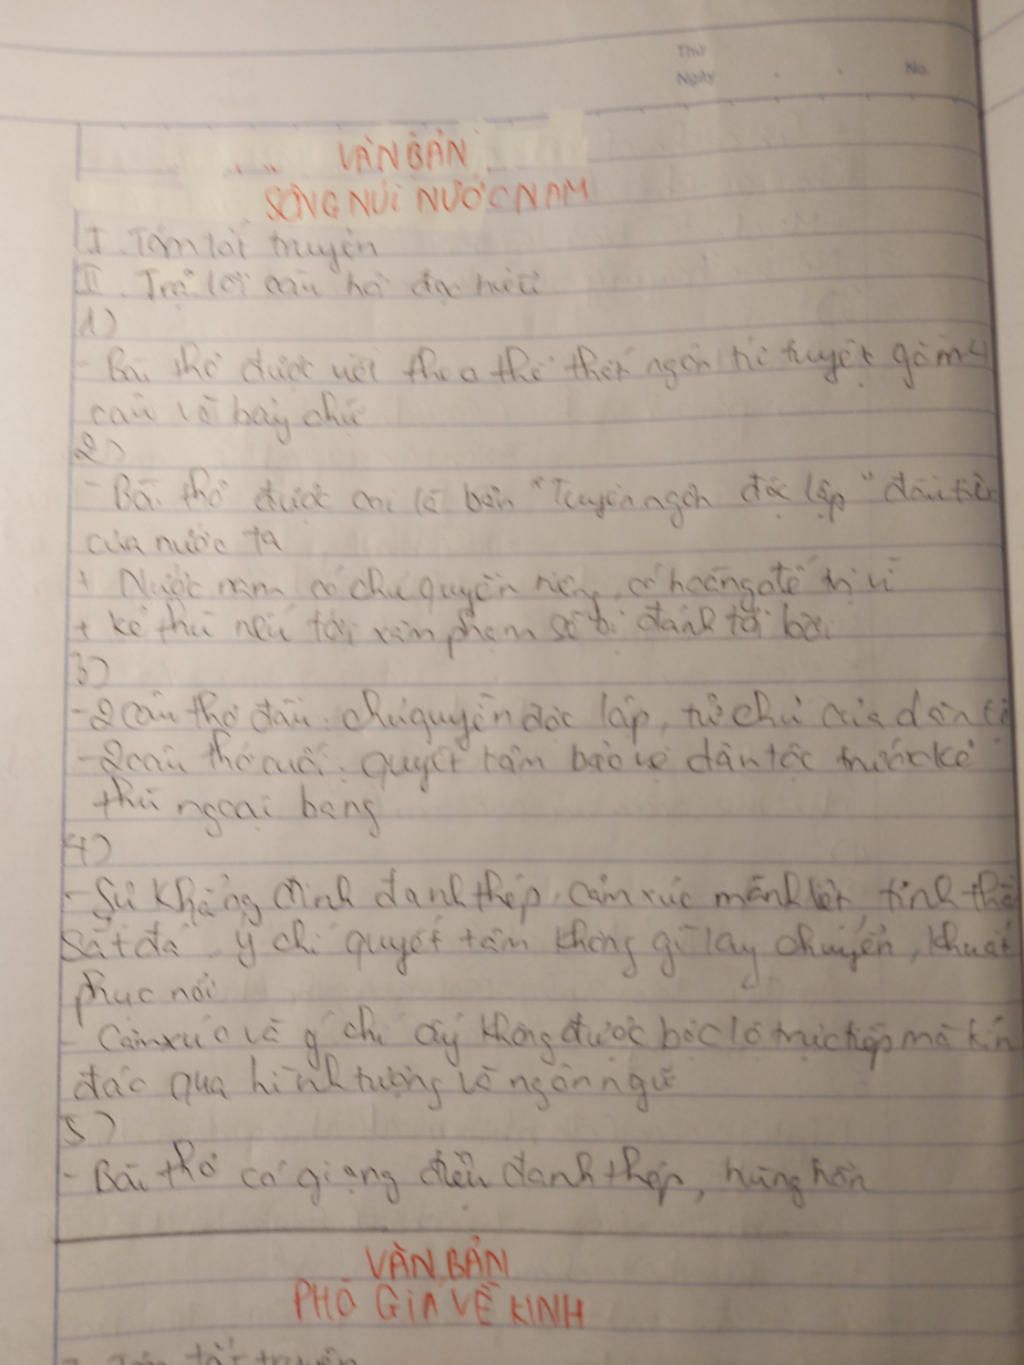 Thứ
Ngày . . No.
VĂN BẢN
SÔNG NÚI NƯỚC NAM
I. Tóm tắt truyện
II. Trả lời câu hỏi đọc hiểu
1)
- Bài thơ được viết theo thể thất ngôn tứ tuyệt gồm 4
câu và bảy chữ
2)
- Bài thơ được coi là bản "Tuyên ngôn độc lập" đầu tiên
của nước ta
+ Nước nam có chủ quyền riêng, có hoàng đế trị vì
+ kẻ thù nếu tới xâm phạm sẽ bị đánh tơi bời
3)
- 2 câu thơ đầu: chủ quyền độc lập, tự chủ của dân tộ
- 2 câu thơ cuối: quyết tâm bảo vệ dân tộc trước kẻ
thù ngoại bang
4)
- Sự khẳng định đanh thép, cảm xúc mãnh liệt, tinh thần
sắt đá, ý chí quyết tâm không gì lay chuyển, khuất
phục nổi
- Cảm xúc và ý chí ấy không được bộc lộ trực tiếp mà kín
đáo qua hình tượng và ngôn ngữ
5)
- Bài thơ có giọng điệu đanh thép, hùng hồn
VĂN BẢN
PHÒ GIÁ VỀ KINH
I. Tóm tắt truyện